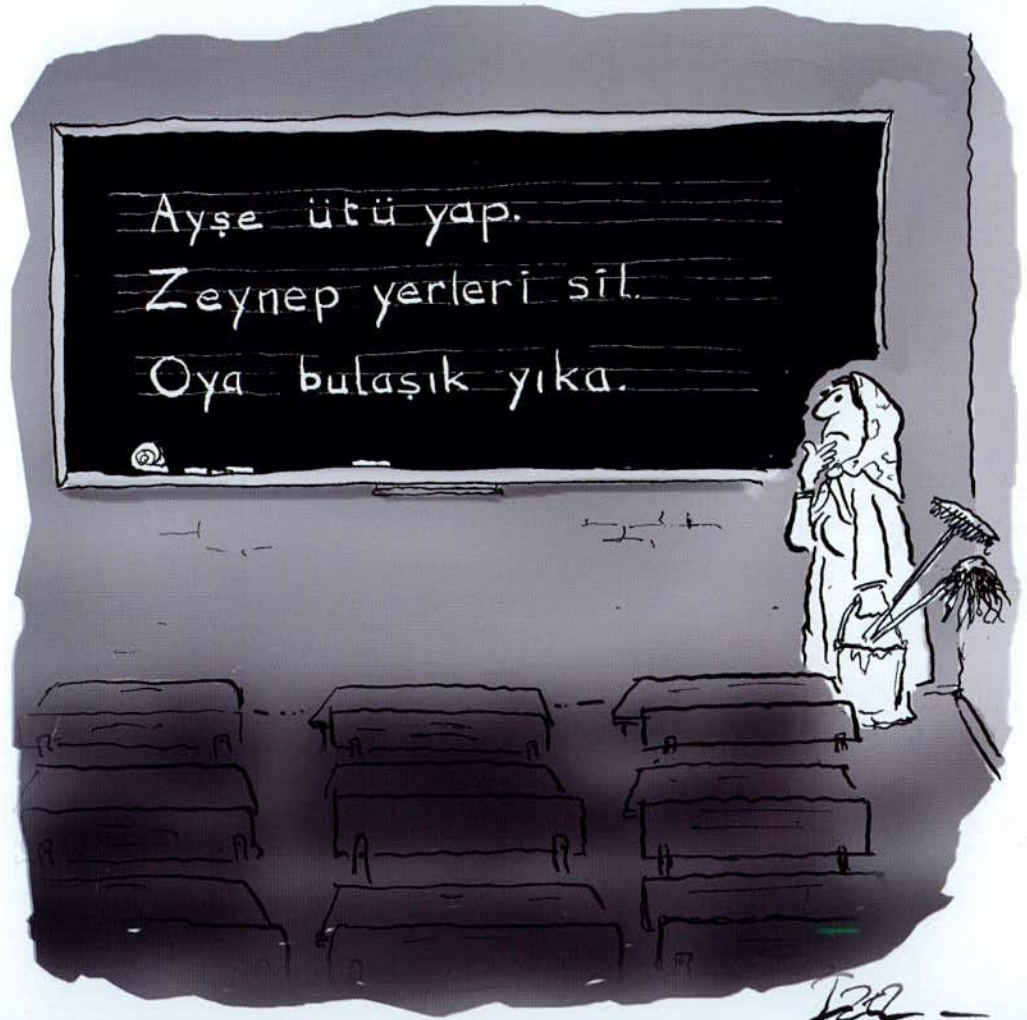 Ayşe ütü yap.
Zeynep yerleri sil.
Oya bulaşık yıka.